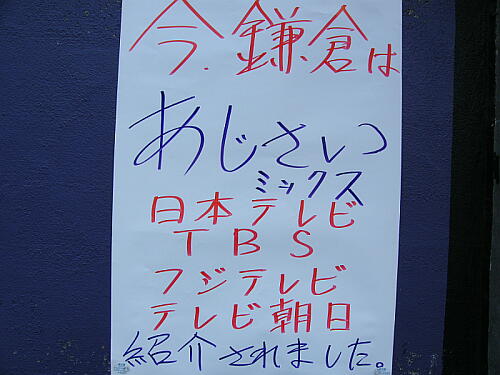 今、鎌倉は
あじさい
ミックス
日本テレビ
TBS
フジテレビ
テレビ朝日
紹介されました。